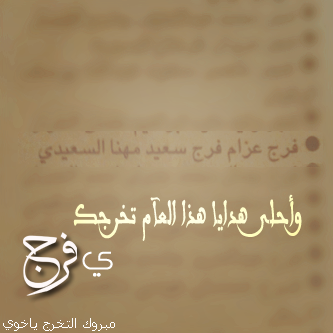 فرج عزام فرج سعيد مهنا السعيدي
وأحلى هدايا هذا العآم تخرجك
ي فرج
مبروك التخرج ياخوي